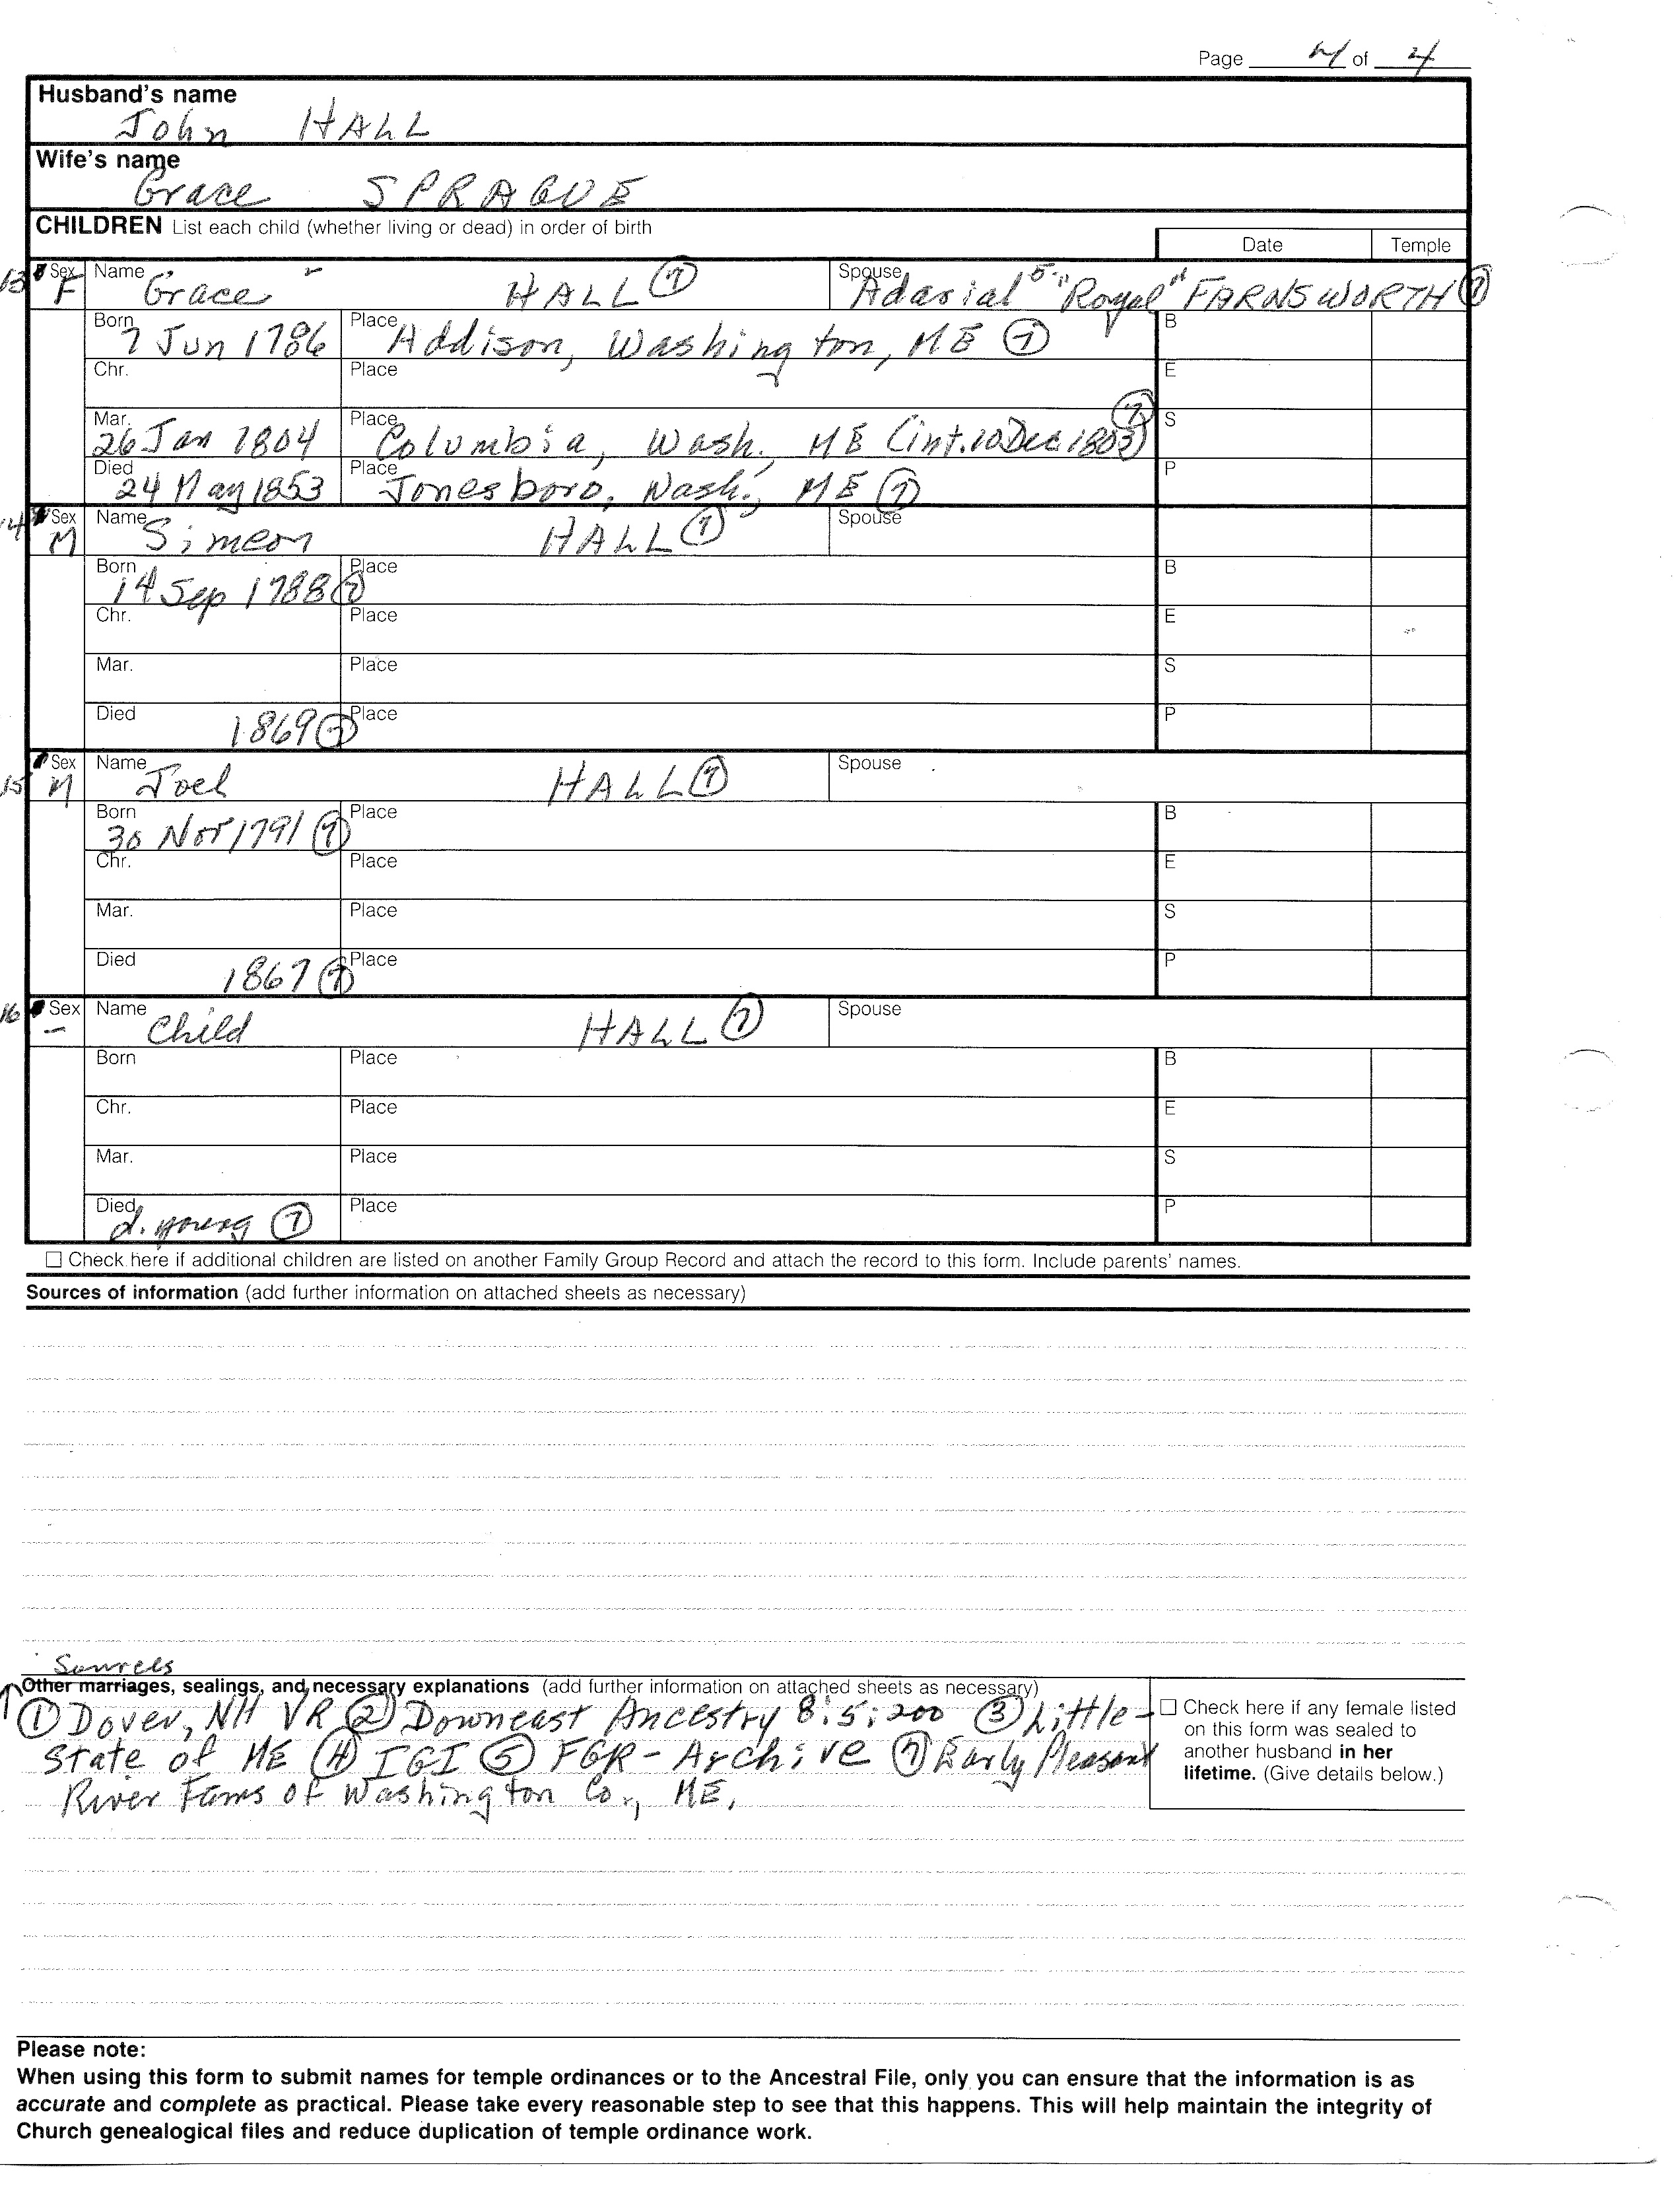 Page 4 of 4
Husband's name
John HALL
Wife's name
Grace SPRAGUE
CHILDREN List each child (whether living or dead) in order of birth
Date Temple
13 Sex Name Spouse
F Grace HALL ⑦ Adarial "Royal" FARNSWORTH ⑦
Born Place B
7 Jun 1786 Addison, Washington, ME ⑦
Chr. Place E
Mar. Place S
26 Jan 1804 Columbia, Wash., ME (int. 10 Dec 1803) ⑦
Died Place P
24 May 1853 Jonesboro, Wash., ME ⑦
14 Sex Name Spouse
M Simeon HALL ⑦
Born Place B
14 Sep 1788 ⑦
Chr. Place E
Mar. Place S
Died Place P
1869 ⑦
15 Sex Name Spouse
M Joel HALL ⑦
Born Place B
30 Nov 1791 ⑦
Chr. Place E
Mar. Place S
Died Place P
1867 ⑦
16 Sex Name Spouse
– Child HALL ⑦
Born Place B
Chr. Place E
Mar. Place S
Died Place P
d. young ⑦
☐ Check here if additional children are listed on another Family Group Record and attach the record to this form. Include parents' names.
Sources of information (add further information on attached sheets as necessary)
Sources
Other marriages, sealings, and necessary explanations (add further information on attached sheets as necessary)
① Dover, NH VR ② Downeast Ancestry 8:5:200 ③ Little-
State of ME ④ IGI ⑤ FGR-Archive ⑦ Early Pleasant
River Fams of Washington Co., ME.
☐ Check here if any female listed
on this form was sealed to
another husband in her
lifetime. (Give details below.)
Please note:
When using this form to submit names for temple ordinances or to the Ancestral File, only you can ensure that the information is as
accurate and complete as practical. Please take every reasonable step to see that this happens. This will help maintain the integrity of
Church genealogical files and reduce duplication of temple ordinance work.